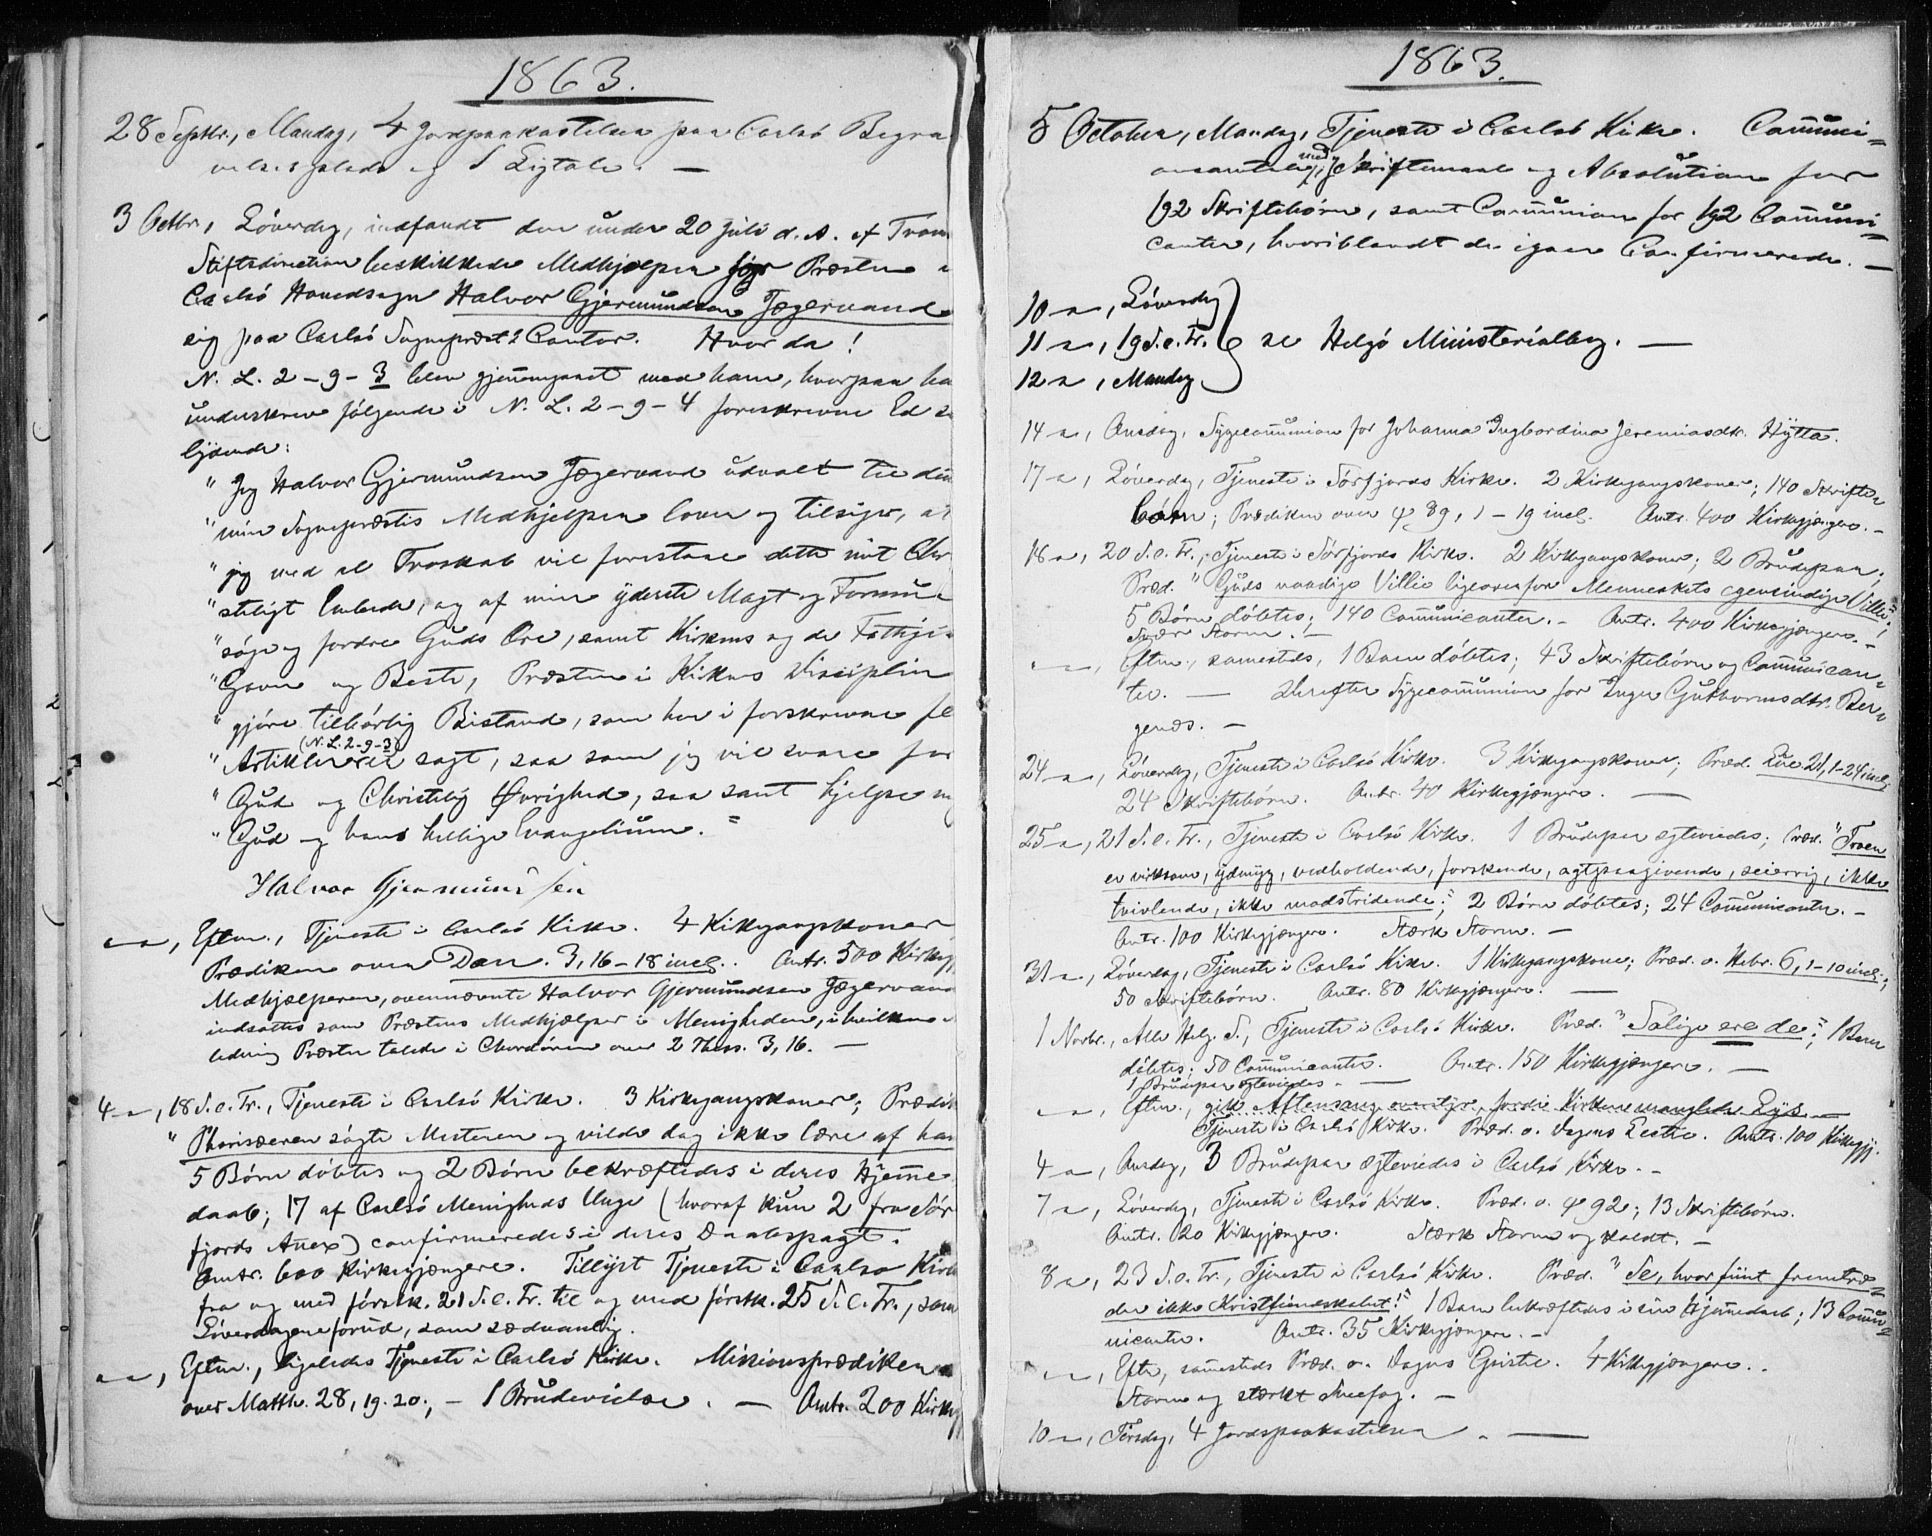 1863.
28 Septbr., Mandag, 4 Jordpaakastelser paa Carlsö Begra
velsesplads og 1 Ligtale. —
3 Octbr., Löverdag, indfandt den under 20 Juli d. A. af Trom
Stiftsdirection beskikkede Medhjælper for Præsten i
Carlsö Hovedsogn Halvor Gjermundsen Jægervand
sig paa Carlsö Sognepræsts Contor. Hvor da!
N. L. 2-9-3 blev gjennemgaaet med ham, hvorpaa ha
underskrev følgende i N. L. 2-9-4 foreskrevne Ed
lydende:
"Jeg Halvor Gjermundsen Jægervand udvalt til
"min Sognepræstes Medhjelper lover og tilsiger, at
"jeg med al Troskab vil forestaae dette mit Chr
"steligt Embede, og af min yderste Magt og Formu
"søge og fordre Guds Ære, samt Kirkens og de Fattiges
"Gavn og Beste, Præsten i Kirkens Disciplin
"gjøre tilbørlig Bistand, som her i forskrevne
(N. L. 2-9-3)
"Artikler er sagt, saa som jeg vil svare for
"Gud og Christelig Øvrighed, saa samt hjelpe mig
"Gud og hans hellige Evangelium."
Halvor Gjermundsen
— , Eftm., Tjeneste i Carlsö Kirke. 4 Kirkegangskoner
Prædiken over Dan. 3, 16-18 incl. Antr. 500 Kirkegj
Medhjælperen, ovennævnte Halvor Gjermundsen Jægervand
indsattes som Præstens Medhjælper i Menigheden, i hvilken
ledning Præsten talede i Chordøren over 2 Thess. 3, 16. —
4 — , 18 S. e. Tr., Tjeneste i Carlsö Kirke. 3 Kirkegangskoner; Prædik
"Pharisæeren søgte Mesteren og vilde dog ikke lære af ham
5 Börn döbtes og 2 Börn bekræftedes i deres Hjemme
daab; 17 af Carlsö Menigheds Unge (hvoraf kun 2 fra Sör
fjords Anex) confirmeredes i deres Daabspagt.
Antr. 600 Kirkegjængere. Tillyst Tjeneste i Carlsö Kirke
fra og med förstk. 21 S. e. Tr. til og med förstk. 25 S. e. Tr., samt
Löverdagene forud, som sædvanlig.
— , Eftm., ligeledes Tjeneste i Carlsö Kirke. Missionsprædiken
over Matth. 28, 19. 20; — 1 Brudevielse. — Antr. 200 Kirkegj
1863.
5 October, Mandag, Tjeneste i Carlsö Kirke. Communi-
onsantale med Skriftemaal og Absolution for
192 Skriftebörn, samt Communion for 192 Communi-
canter, hvoriblandt de igaar Confirmerede. —
10 — , Löverdag
11 — , 19 S. e. Tr. se Helgö Ministerialbog. —
12 — , Mandag
14 — , Onsdag, Sygecommunion for Johanna Ingbordina Jeremiasdtr. Hytta.
17 — , Löverdag, Tjeneste i Sörfjords Kirke. 2 Kirkegangskoner; 140 Skrifte-
börn; Prædiken over ψ 89, 1-19 incl. Antr. 400 Kirkegjængere. —
18 — , 20 S. e. Tr., Tjeneste i Sörfjords Kirke. 2 Kirkegangskoner; 2 Brudepar;
Præd. "Guds naadige Villie ligeoverfor Menneskets egensindige Villie"!
5 Börn döbtes; 140 Communicanter. — Antr. 400 Kirkegjængere. —
Svær Storm! —
— , Eftm., sammesteds, 1 Barn döbtes; 43 Skriftebörn og Communican-
ter. — Derefter Sygecommunion for Inger Guthormsdtr. Ber-
genes. —
24 — , Löverdag, Tjeneste i Carlsö Kirke. 3 Kirkegangskoner; Præd. Luc. 21, 1-24 incl.;
24 Skriftebörn. Antr. 40 Kirkegjængere. —
25 — , 21 S. e. Tr., Tjeneste i Carlsö Kirke. 1 Brudepar egteviedes; Præd. "Troen
er virksom, ydmyg, vedholdende, forskende, agtpaagivende, seierrig, ikke
tvivlende, ikke modstridende"; 2 Börn döbtes; 24 Communicanter. —
Antr. 100 Kirkegjængere. Stærk Storm. —
31 — , Löverdag, Tjeneste i Carlsö Kirke. 1 Kirkegangskone; Præd. o. Hebr. 6, 1-10 incl.;
50 Skriftebörn. Antr. 80 Kirkegjængere. —
1 Novbr., Alle Helg. S., Tjeneste i Carlsö Kirke. Præd. "Salige ere de"; 1 Barn
döbtes; 50 Communicanter. Antr. 150 Kirkegjængere. —
1 Brudepar egteviedes. —
— , Eftm., gik Aftensang overstyr, fordi Kirken manglede Lys. —
Tjeneste i Carlsö Kirke. Præd. o. Dagens Lectie. Antr. 100 Kirkegj.
4 — , Onsdag, 3 Brudepar egteviedes i Carlsö Kirke. —
7 — , Löverdag, Tjeneste i Carlsö Kirke. Præd. o. ψ 92; 13 Skriftebörn.
Antr. 20 Kirkegjængere. Stærk Storm og koldt. —
8 — , 23 S. e. Tr., Tjeneste i Carlsö Kirke. Præd. "Se, hvor fiint fremtræ-
der ikke Kristfiendskabet!" 1 Barn bekræftedes i sin Hjemmedaab; 13 Commu-
nicanter. Antr. 35 Kirkegjængere. —
— , Eftm., sammesteds Præd. o. Dagens Epistel. 4 Kirkegjængere.
Storm og stærkt Sneefog. —
10 — , Tirsdag, 4 Jordspaakastelser. —